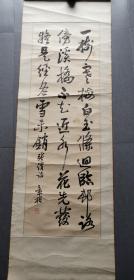 一樹寒梅白玉條迴臨邨路
傍溪橋不知近水花先發
疑是經冬雪未銷 張謂詩